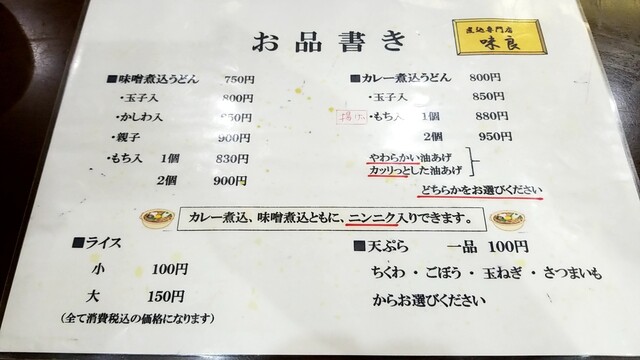 お品書き
煮込専門店
味良
■味噌煮込うどん 750円
・玉子入 800円
・かしわ入 850円
・親子 900円
・もち入 1個 830円
2個 900円
■カレー煮込うどん 800円
・玉子入 850円
揚げ ・もち入 1個 880円
2個 950円
やわらかい油あげ
カッリっとした油あげ
どちらかをお選びください
カレー煮込、味噌煮込ともに、ニンニク入りできます。
■ライス
小 100円
大 150円
(全て消費税込の価格になります)
■天ぷら 一品 100円
ちくわ・ごぼう・玉ねぎ・さつまいも
からお選びください